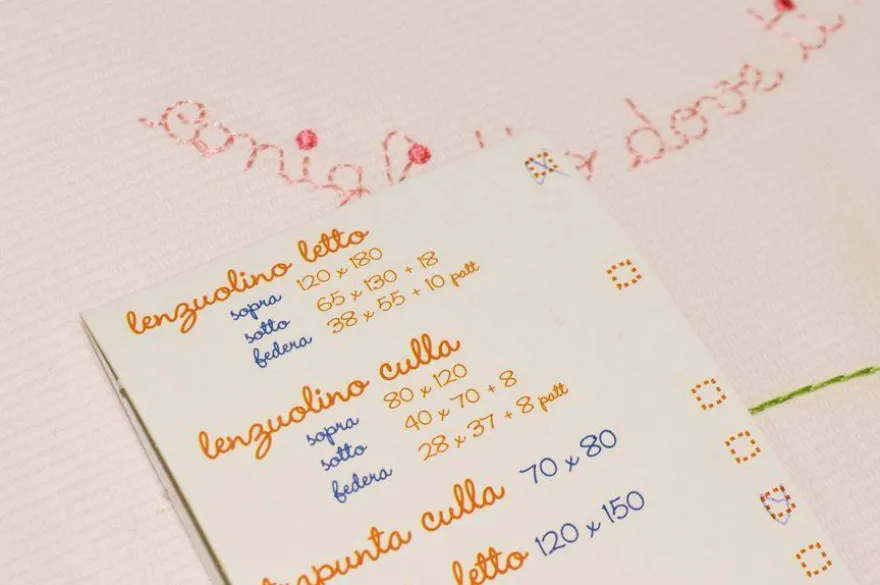 lenzuolino letto
sopra 120 x 180
sotto 65 x 130 + 18
federa 38 x 55 + 10 patt
lenzuolino culla
sopra 80 x 120
sotto 40 x 70 + 8
federa 28 x 37 + 8 patt
culla 70 x 80
letto 120 x 150